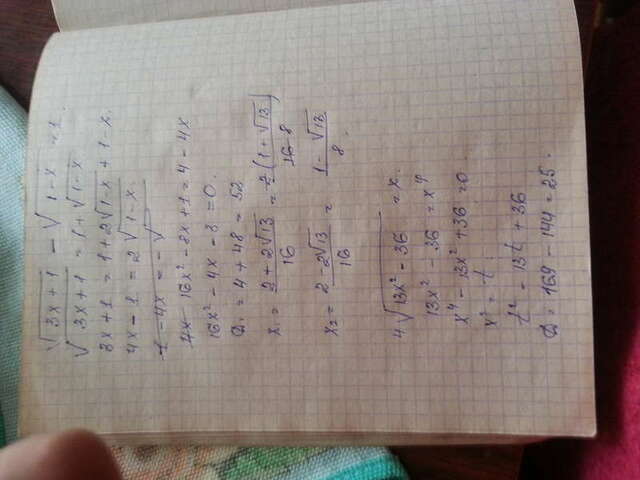 √3x+1 - √1-x = 1.
√3x+1 = 1+√1-x
3x+1 = 1+2√1-x + 1-x.
4x-1 = 2√1-x.
1-4x = -√
4x - 16x² - 8x+1 = 4-4x
16x² - 4x - 3 = 0.
D₁ = 4+48 = 52
x₁ = 2+2√13/16 = 2(1+√13)/16 8
x₂ = 2-2√13/16 = 1-√13/8.
4√13x²-36 = x.
13x² - 36 = x⁴
x⁴ - 13x² + 36 = 0.
x² = t
t² - 13t + 36
D = 169 - 144 = 25.